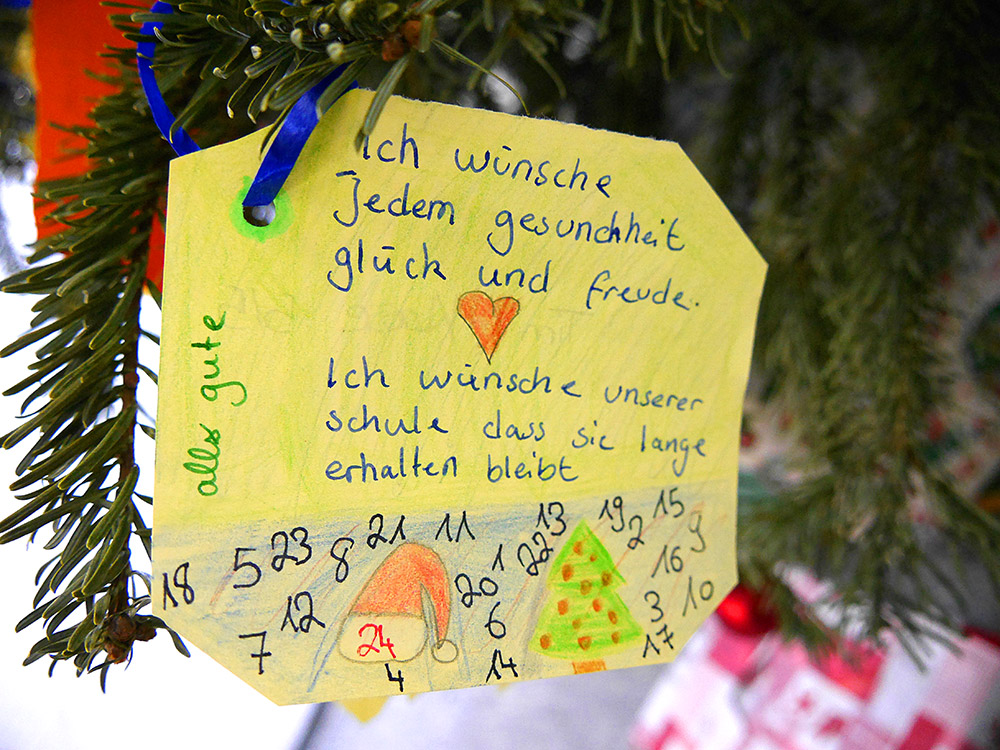 Ich wünsche
Jedem gesundheit
glück und freude.
Ich wünsche unserer
schule dass sie lange
erhalten bleibt
alles gute
18 5 23 8 21 11 13 19 15
1 22 2 9
12 20 16
7 24 6 3 10
4 14 17